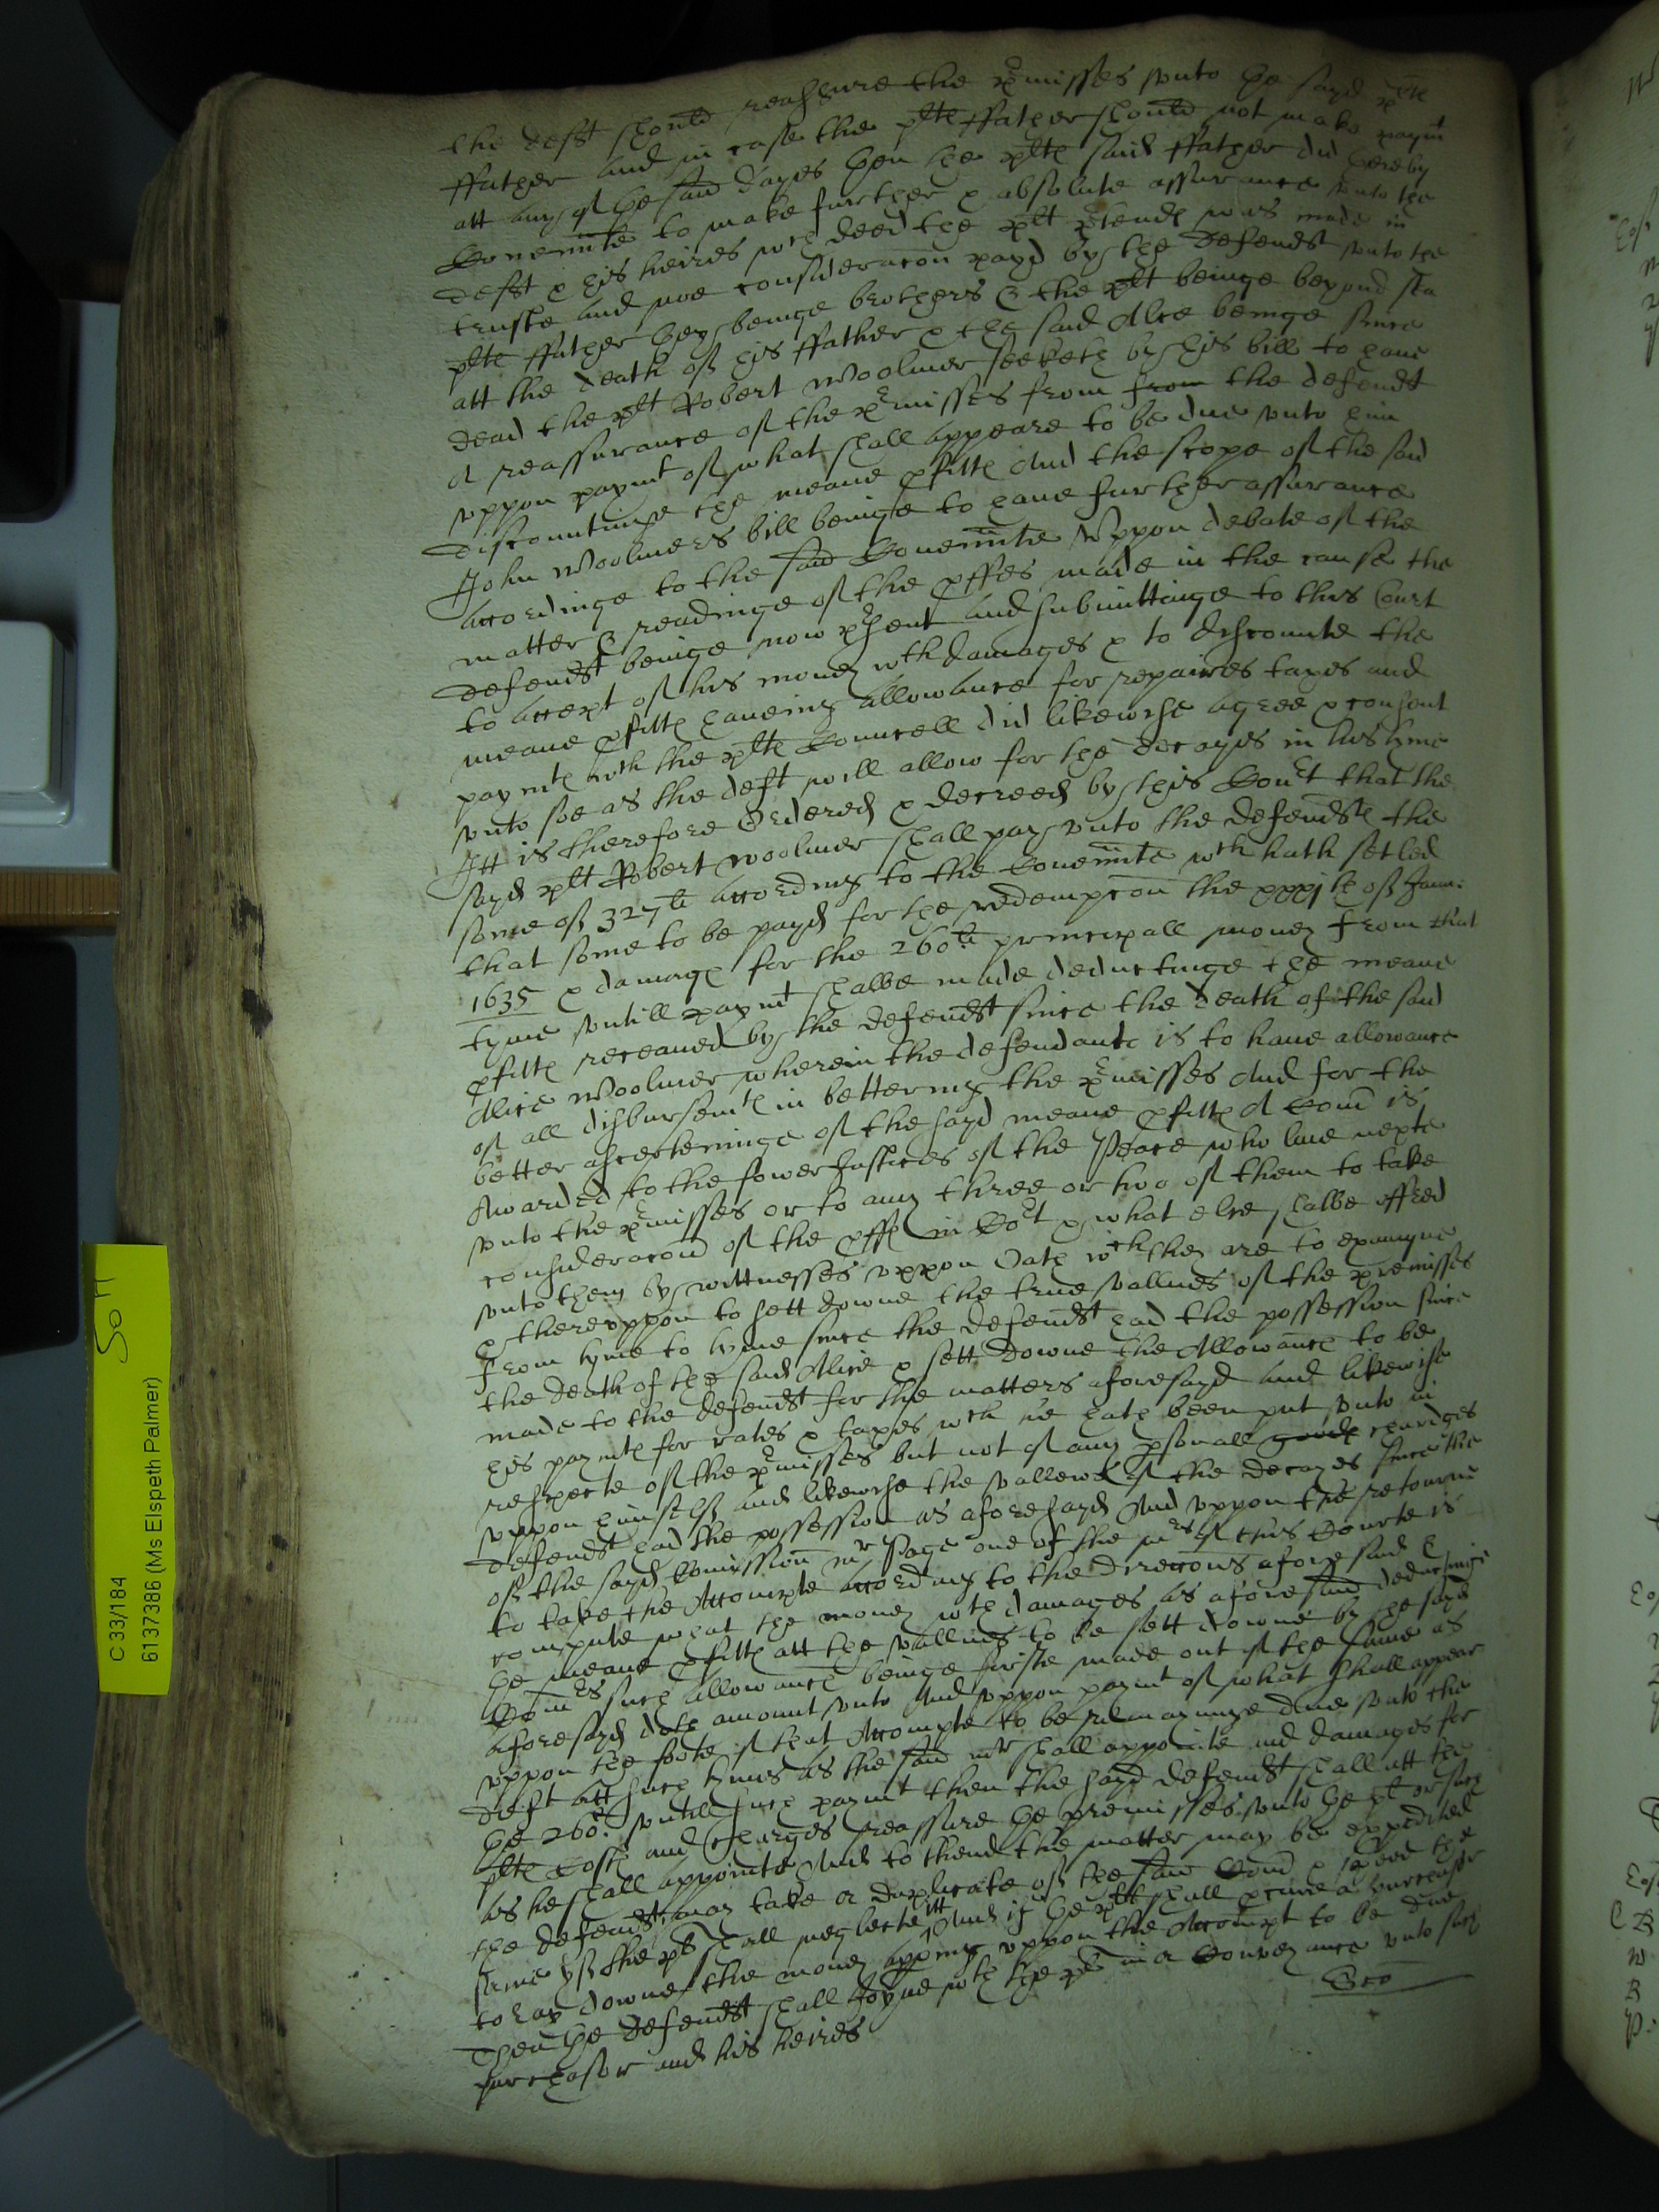 the deft should reassure the pmisses unto the sayd plte
ffather And in case the plte ffather should not make paymt
att any of the said dayes then the plte said ffather did thereby
Covennte to make further & absolute assurance unto the
deft & his heires wch deed the plt ptende was made in
truste And noe consideracon payd by the Defendt unto the
plte ffather they beinge brothers & the plt beinge beyond sea
att the death of his ffather & the said Alce beinge since
dead the plt Robert Woolmer seeketh by his bill to have
A reassurance of the pmisses from from the defendt
uppon paymt of what shall appeare to be due unto him
discountinge the meane pfitte And the scope of the said
John Woolmers bill beinge to have further assurance
accordinge to the said Covennte Uppon debate of the
matter & readinge of the pffes made in the cause the
defendt beinge now psent and submittinge to this Court
to accept of his money wth damages & to discounte the
meane pfitte haveing allowance for repaires taxes and
paymte wch the plte Councell did likewise agree & consent
unto soe as the deft will allow for the decayes in his tyme
Itt is therefore Ordered & decreed by this Court that the
sayd plt Robert Woolmer shall pay unto the defendte the
some of 327li according to the Covennte wch hath setled
that some to be payd for the redempcon the xxxjth of Janu:
1635 & damage for the 260li principall money from that
tyme untill paymt shalbe made deductinge the meane
pfitte receaved by the defendt since the death of the said
Alice Woolmer wherein the defendante is to have allowance
of all disbursemte in bettering the pmisses And for the
better ascerteninge of the sayd meane pfitte A Comn is
Awarded to the fower Justices of the Peace who live nexte
unto the pmisses or to any three or two of them to take
consideracon of the pffe in Cort & what else shalbe offred
unto them by wittnesses uppon Oath wch they are to examyne
& thereuppon to sett downe the true vallues of the premisses
from tyme to tyme since the defendt had the possession since
the death of the said Alice & sett Downe the Allowance to be
made to the defendt for the matters aforesayd and likewise
his paymte for rates & taxes wch he hath been put unto in
respecte of the pmisses but not of any psonall goods chardges
uppon himselfe and likewise the vallewe of the decayes since the
defendt had the possession as aforesayd And uppon the retourne
of the sayd Comission mr Page one of the mrs of this Courte is
to take the Accompte according to the direccons aforesaid &
compute what the money wth damages as aforesaid deductinge
the meane pfitte att the vallues to be sett downe by the sayd
Comrs such allowance beinge firste made out of the same as
aforesayd doth amount unto And uppon paymt of what shall appear
uppon the foote of that Accompte to be remayninge due unto the
deft att such tymes as the said mr shall appointe and damages for
the 260li untill such paymt then the sayd defendt shall att the
plte Coste and Charges reassure the premisses unto the plt or such
as he shall appointe And to thend the matter may be expedited
the defendt may take a duplicate of the said Comn & speed the
same yf the plt shall neglecte itt And if the plt shall pcure a purchasor
to lay downe the money appeing uppon the Accompt to be due
Then the defendt shall Joyne wth the plt in a Conveyance unto such
purchasor and his heires